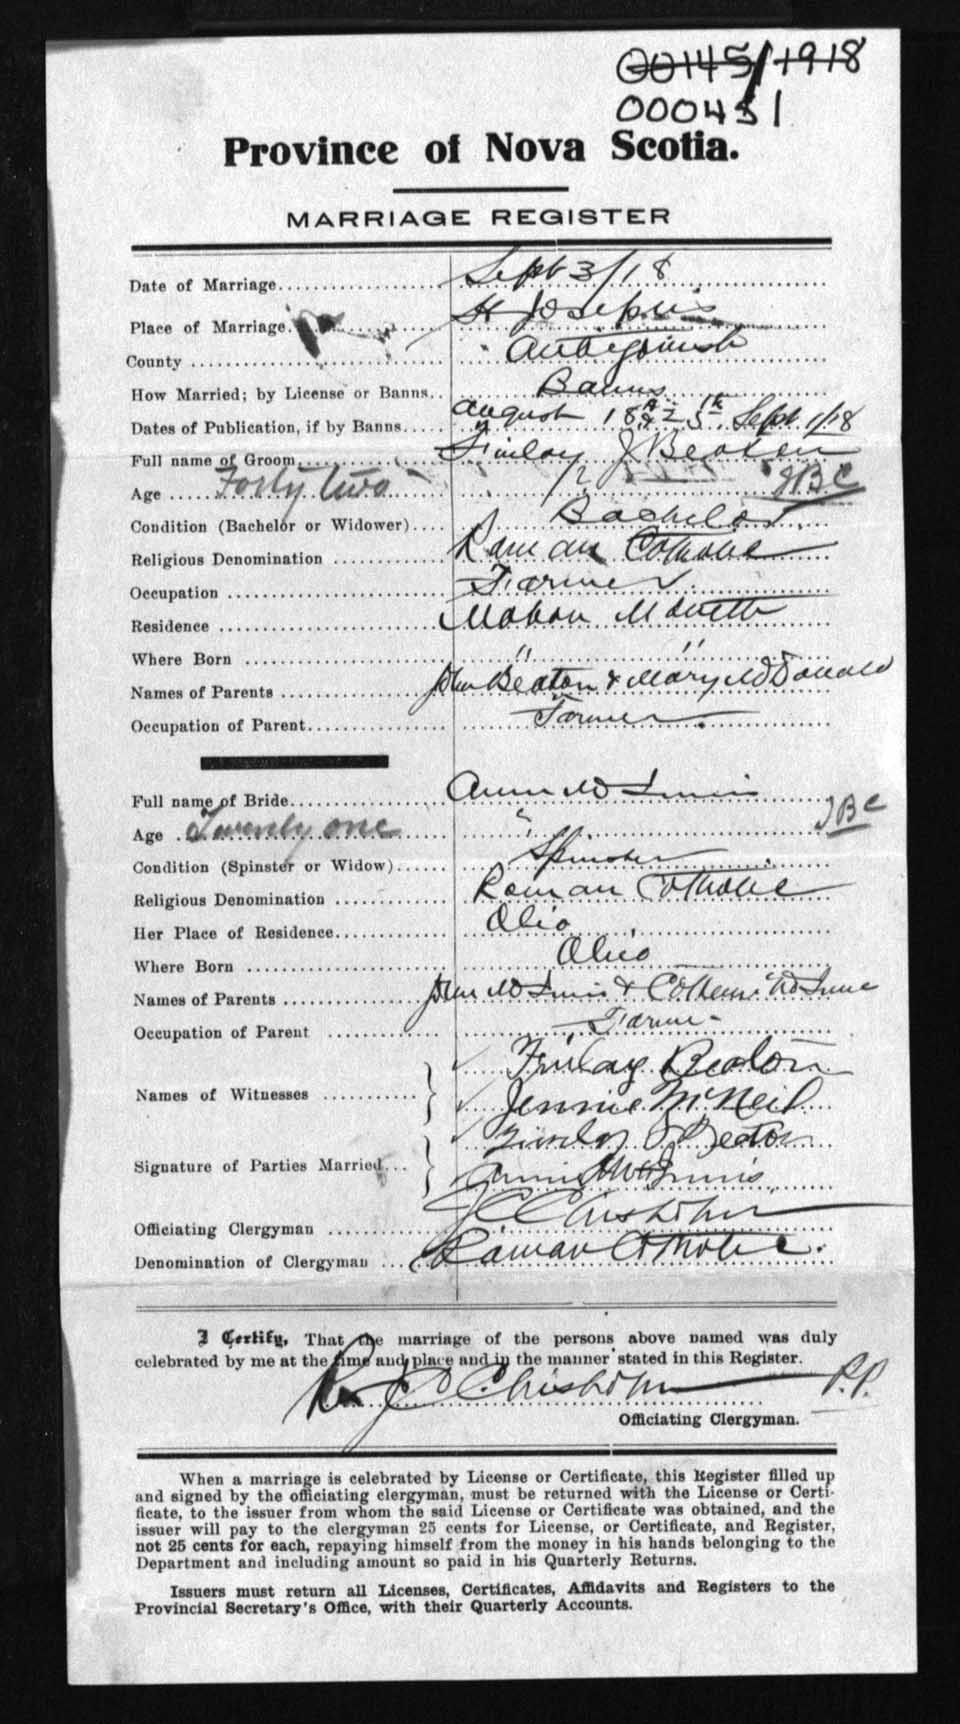 00145/1918
000451
Province of Nova Scotia.
MARRIAGE REGISTER
Date of Marriage Sept 3/18
Place of Marriage St Joseph's
County Antigonish
How Married; by License or Banns Banns
Dates of Publication, if by Banns August 18th 25th Sept 1/18
Full name of Groom Finlay J Beaton
Age Forty two JBC
Condition (Bachelor or Widower) Bachelor
Religious Denomination Roman Catholic
Occupation Farmer
Residence Mabou
Where Born " "
Names of Parents John Beaton & Mary McDonald
Occupation of Parent Farmer
Full name of Bride Ann McInnis
Age Twenty one JBC
Condition (Spinster or Widow) Spinster
Religious Denomination Roman Catholic
Her Place of Residence Ohio
Where Born Ohio
Names of Parents John McInnis & Catherine McInnis
Occupation of Parent Farmer
Names of Witnesses Finlay Beaton
Jennie McNeil
Signature of Parties Married Finlay J Beaton
Annie McInnis
Officiating Clergyman J C Chisholm
Denomination of Clergyman Roman Catholic.
I Certify, That the marriage of the persons above named was duly
celebrated by me at the time and place and in the manner stated in this Register.
Rev J C Chisholm P.P.
Officiating Clergyman.
When a marriage is celebrated by License or Certificate, this Register filled up
and signed by the officiating clergyman, must be returned with the License or Certi-
ficate, to the issuer from whom the said License or Certificate was obtained, and the
issuer will pay to the clergyman 25 cents for License, or Certificate, and Register,
not 25 cents for each, repaying himself from the money in his hands belonging to the
Department and including amount so paid in his Quarterly Returns.
Issuers must return all Licenses, Certificates, Affidavits and Registers to the
Provincial Secretary's Office, with their Quarterly Accounts.